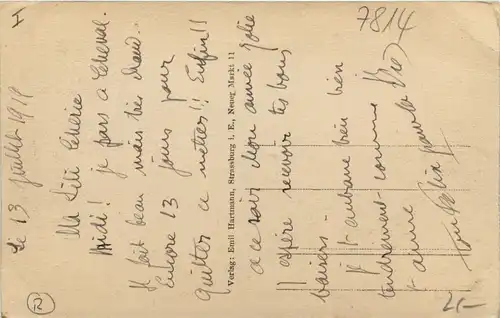 I
7814
Le 13 juillet 1919
Ma Lili Chérie
Midi! je pars à cheval.
Il fait beau mais très chaud.
Encore 13 jours pour
quitter ce métier!! Enfin!!
Verlag: Emil Hartmann, Strassburg i. E., Neuer Markt 11
à ce soir mon aimée jolie
J'espère recevoir tes bons
baisers –
Je t'embrasse bien bien
tendrement comme
t'aime
Ton
R
2.–